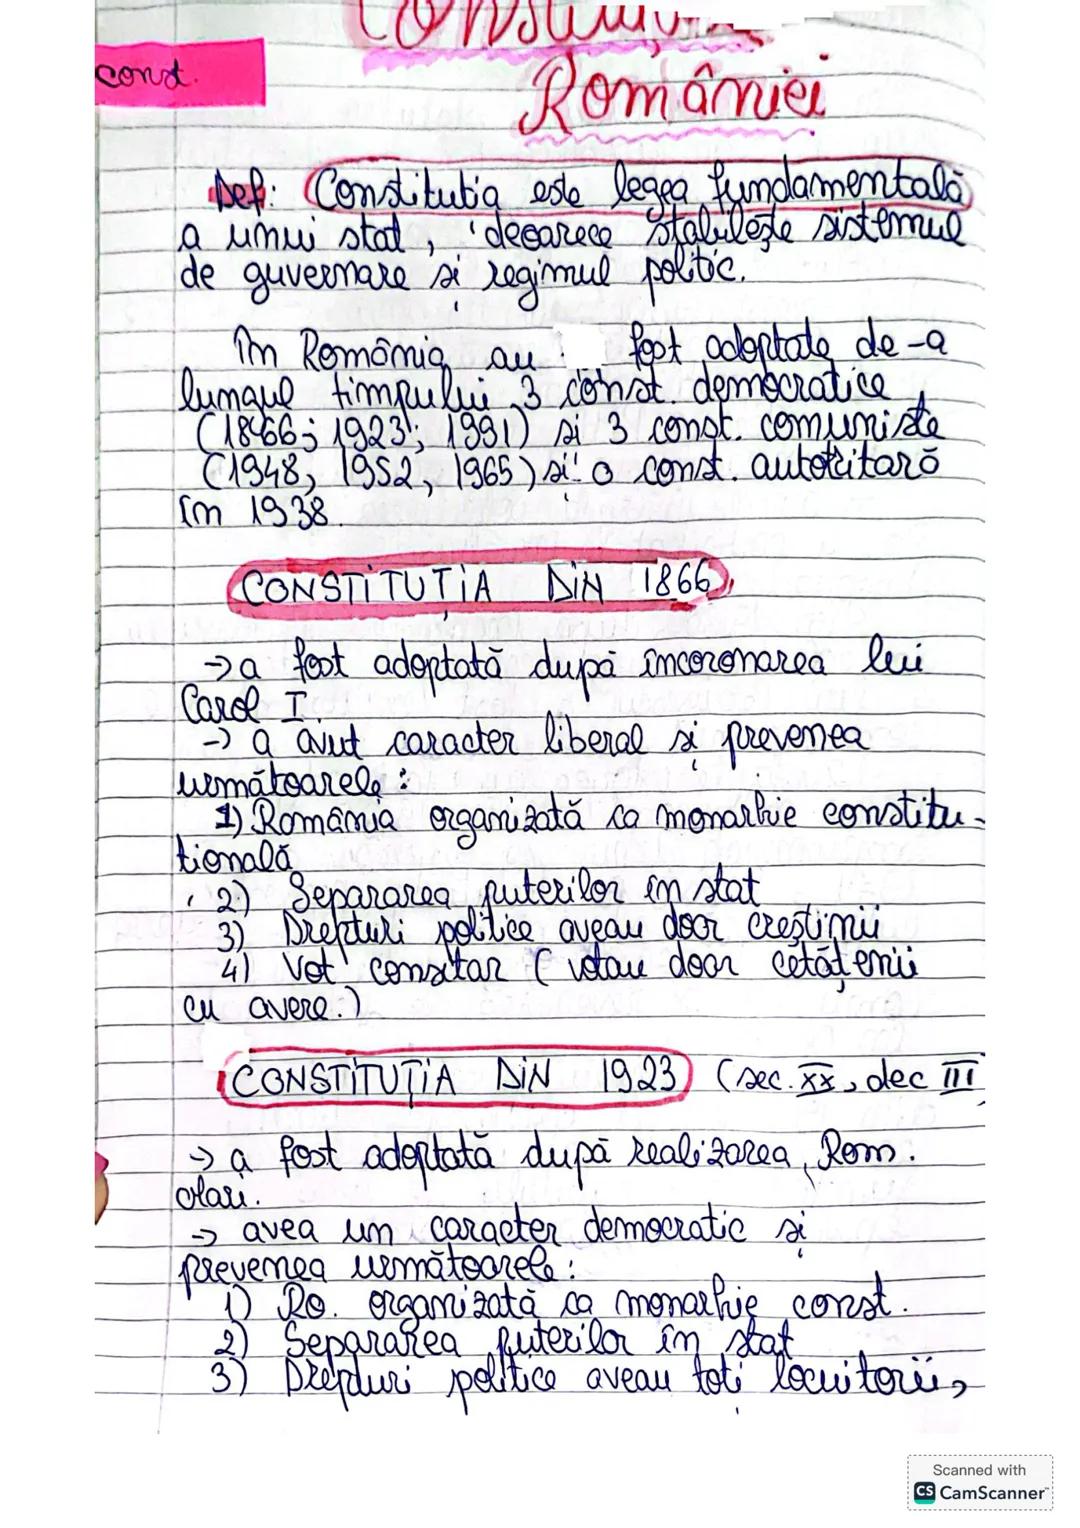 const.
României
Def: Constituția este legea fundamentală
a unui stat, deoarece stabilește sistemul
de guvernare și regimul politic.
În România au fost adoptate de-a
lungul timpului 3 const. democratice
(1866; 1923; 1991) și 3 const. comuniste
(1948, 1952, 1965) și o const. autoritară
în 1938.
CONSTITUȚIA DIN 1866
→ a fost adoptată după încoronarea lui
Carol I.
→ a avut caracter liberal și prevenea
următoarele:
1) România organizată ca monarhie constitu-
țională
2) Separarea puterilor în stat
3) Drepturi politice aveau doar creștinii
4) Vot censitar (votau doar cetățenii
cu avere.)
CONSTITUȚIA DIN 1923 (sec. XX, dec III
→ a fost adoptată după realizarea Rom.
Mari.
→ avea un caracter democratic și
prevenea următoarele:
1) Ro. organizată ca monarhie const.
2) Separarea puterilor în stat
3) Drepturi politice aveau toți locuitorii,
Scanned with
CS CamScanner